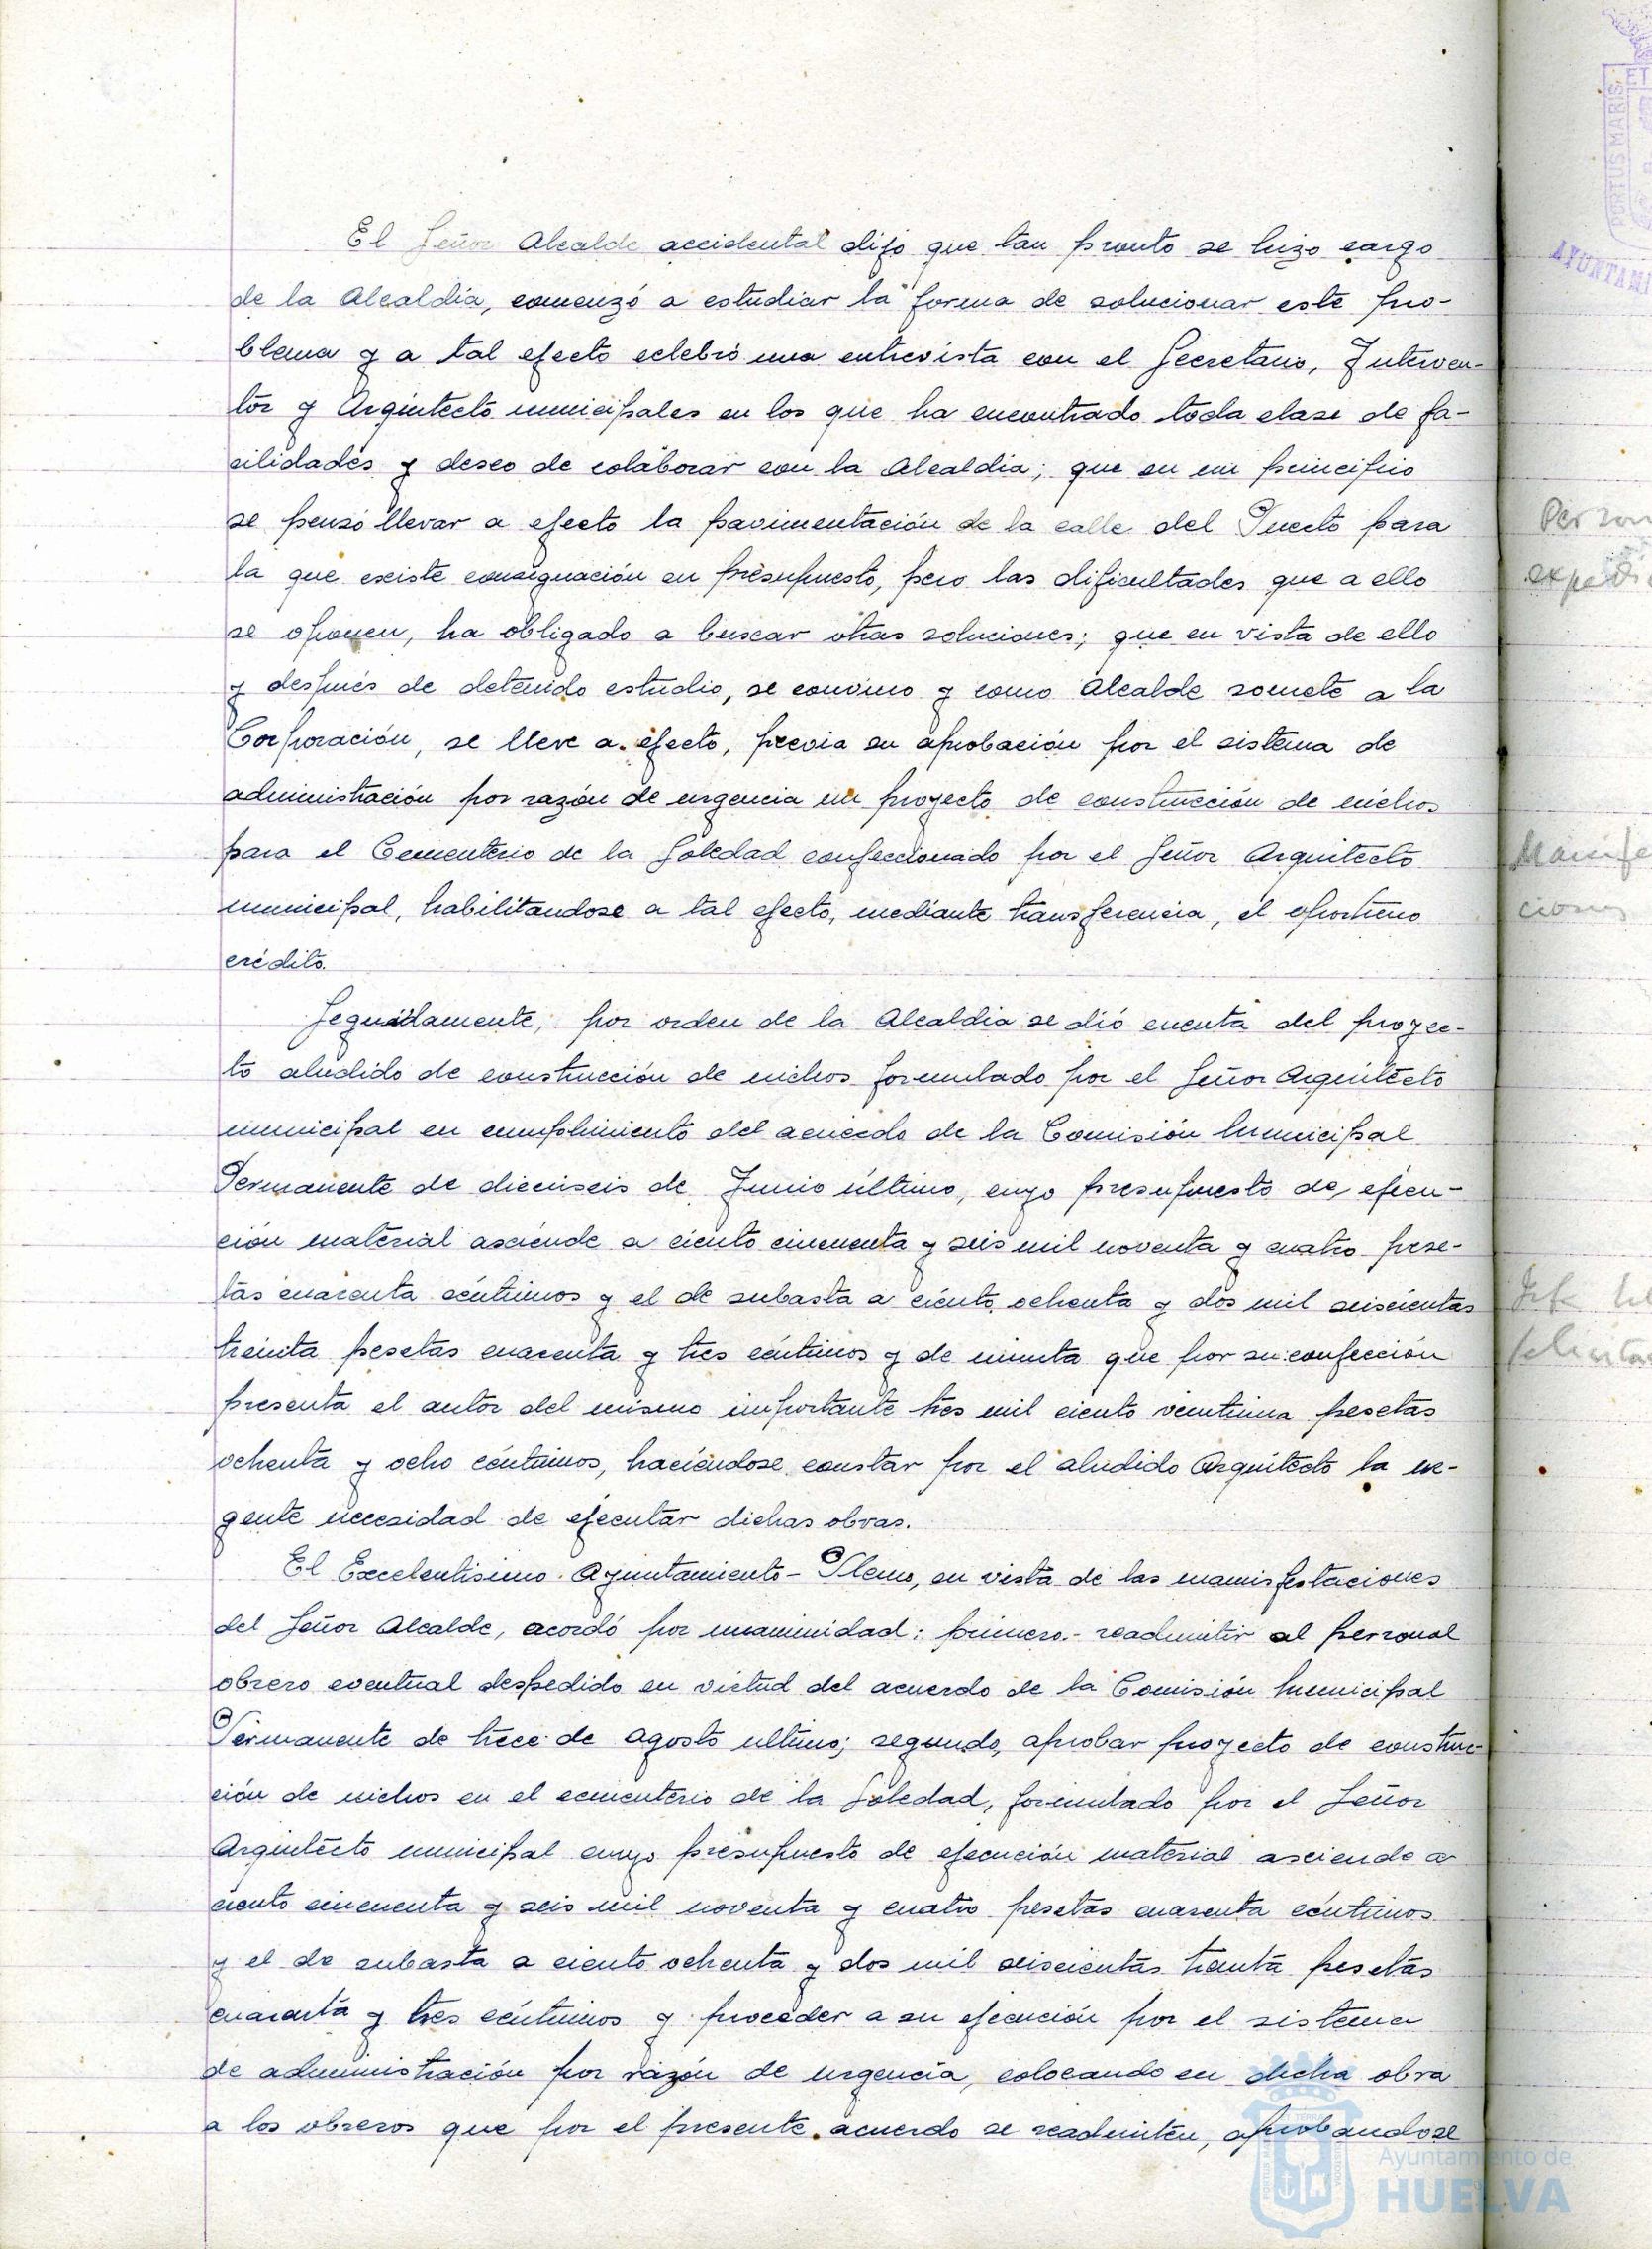 El Señor Alcalde accidental dijo que tan pronto se hizo cargo
de la Alcaldía, comenzó a estudiar la forma de solucionar este pro-
blema y a tal efecto celebró una entrevista con el Secretario, Interven-
tor y Arquitecto municipales en los que ha encontrado toda clase de fa-
cilidades y deseo de colaborar con la Alcaldia; que en un principio
se pensó llevar a efecto la pavimentación de la calle del Puerto para
la que existe consignación en presupuesto, pero las dificultades que a ello
se oponen, ha obligado a buscar otras soluciones; que en vista de ello
y después de detenido estudio, se convino y como Alcalde somete a la
Corporación, se lleve a efecto, previa su aprobación por el sistema de
administración por razón de urgencia un proyecto de construcción de nichos
para el Cementerio de la Soledad confeccionado por el Señor Arquitecto
municipal, habilitandose a tal efecto, mediante transferencia, el oportuno
crédito.
Seguidamente, por orden de la Alcaldia se dió cuenta del proyec-
to aludido de construcción de nichos formulado por el Señor Arquitecto
municipal en cumplimiento del acuerdo de la Comisión Municipal
Permanente de dieciseis de Junio último, cuyo presupuesto de ejecu-
ción material asciende a ciento cincuenta y seis mil noventa y cuatro pese-
tas cuarenta céntimos y el de subasta a ciento ochenta y dos mil seiscientas
treinta pesetas cuarenta y tres céntimos y de minuta que por su confección
presenta el autor del mismo importante tres mil ciento veintiuna pesetas
ochenta y ocho céntimos, haciéndose constar por el aludido Arquitecto la ur-
gente necesidad de ejecutar dichas obras.
El Excelentisimo Ayuntamiento-Pleno, en vista de las manisfestaciones
del Señor Alcalde, acordó por unanimidad: primero.- readmitir al personal
obrero eventual despedido en virtud del acuerdo de la Comisión Municipal
Permanente de trece de Agosto ultimo; segundo, aprobar proyecto de construc-
ción de nichos en el cementerio de la Soledad, formulado por el Señor
Arquitecto municipal cuyo presupuesto de ejecución material asciende a
ciento cincuenta y seis mil noventa y cuatro pesetas cuarenta céntimos
y el de subasta a ciento ochenta y dos mil seiscientas treinta pesetas
cuarenta y tres céntimos y proceder a su ejecución por el sistema
de administración por razón de urgencia, colocando en dicha obra
a los obreros que por el presente acuerdo se readmiten, aprobandose
Ayuntamiento de
HUELVA
PORTUS MARIS ET
AYUNTAMI